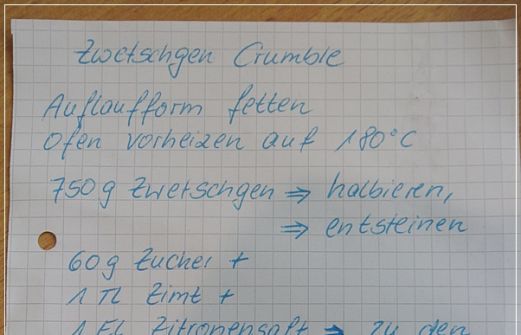 Zwetschgen Crumble
Auflaufform fetten
Ofen vorheizen auf 180°C
750g Zwetschgen ⇒ halbieren,
⇒ entsteinen
60g Zucker +
1 TL Zimt +
1 EL Zitronensaft ⇒ zu den